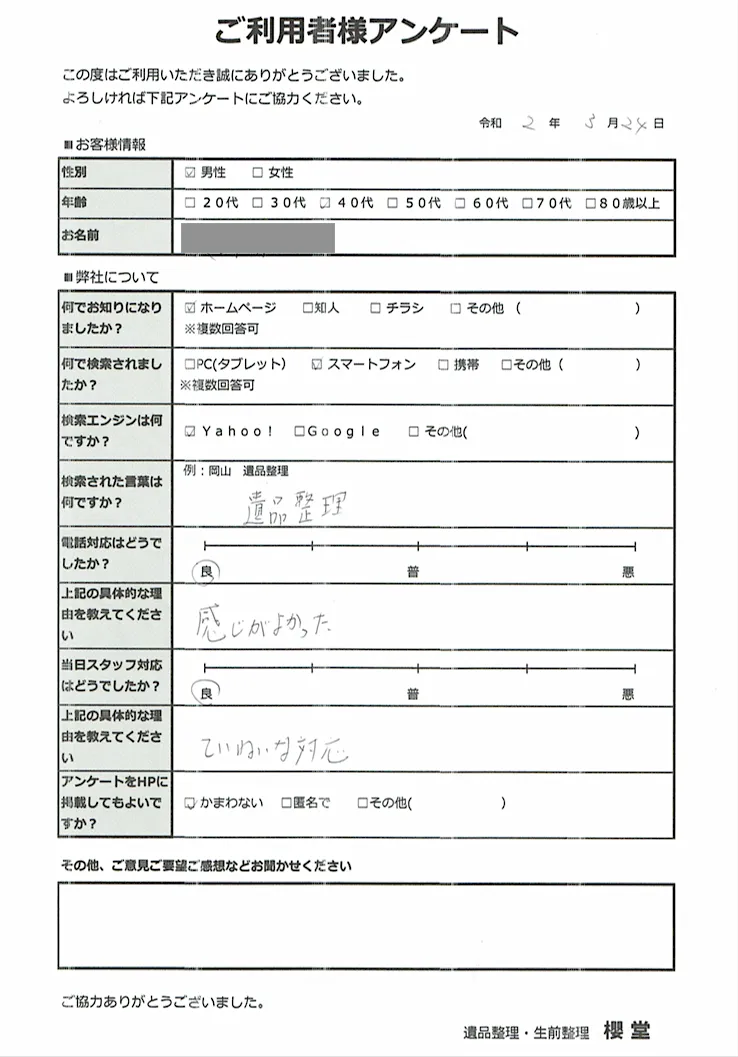 ご利用者様アンケート
この度はご利用いただき誠にありがとうございました。
よろしければ下記アンケートにご協力ください。
令和 2 年 3 月 24 日
■お客様情報
性別 ☑男性 □女性
年齢 □20代 □30代 ☑40代 □50代 □60代 □70代 □80歳以上
お名前
■弊社について
何でお知りになり
ましたか？
☑ホームページ □知人 □チラシ □その他（ ）
※複数回答可
何で検索されまし
たか？
□PC(タブレット） ☑スマートフォン □携帯 □その他（ ）
※複数回答可
検索エンジンは何
ですか？
☑Yahoo！ □Google □その他( )
検索された言葉は
何ですか？
例：岡山 遺品整理
遺品整理
電話対応はどうで
したか？
良 普 悪
上記の具体的な理
由を教えてくださ
い
感じがよかった
当日スタッフ対応
はどうでしたか？
良 普 悪
上記の具体的な理
由を教えてくださ
い
ていねいな対応
アンケートをHPに
掲載してもよいで
すか？
☑かまわない □匿名で □その他( )
その他、ご意見ご要望ご感想などお聞かせください
ご協力ありがとうございました。
遺品整理・生前整理 櫻堂